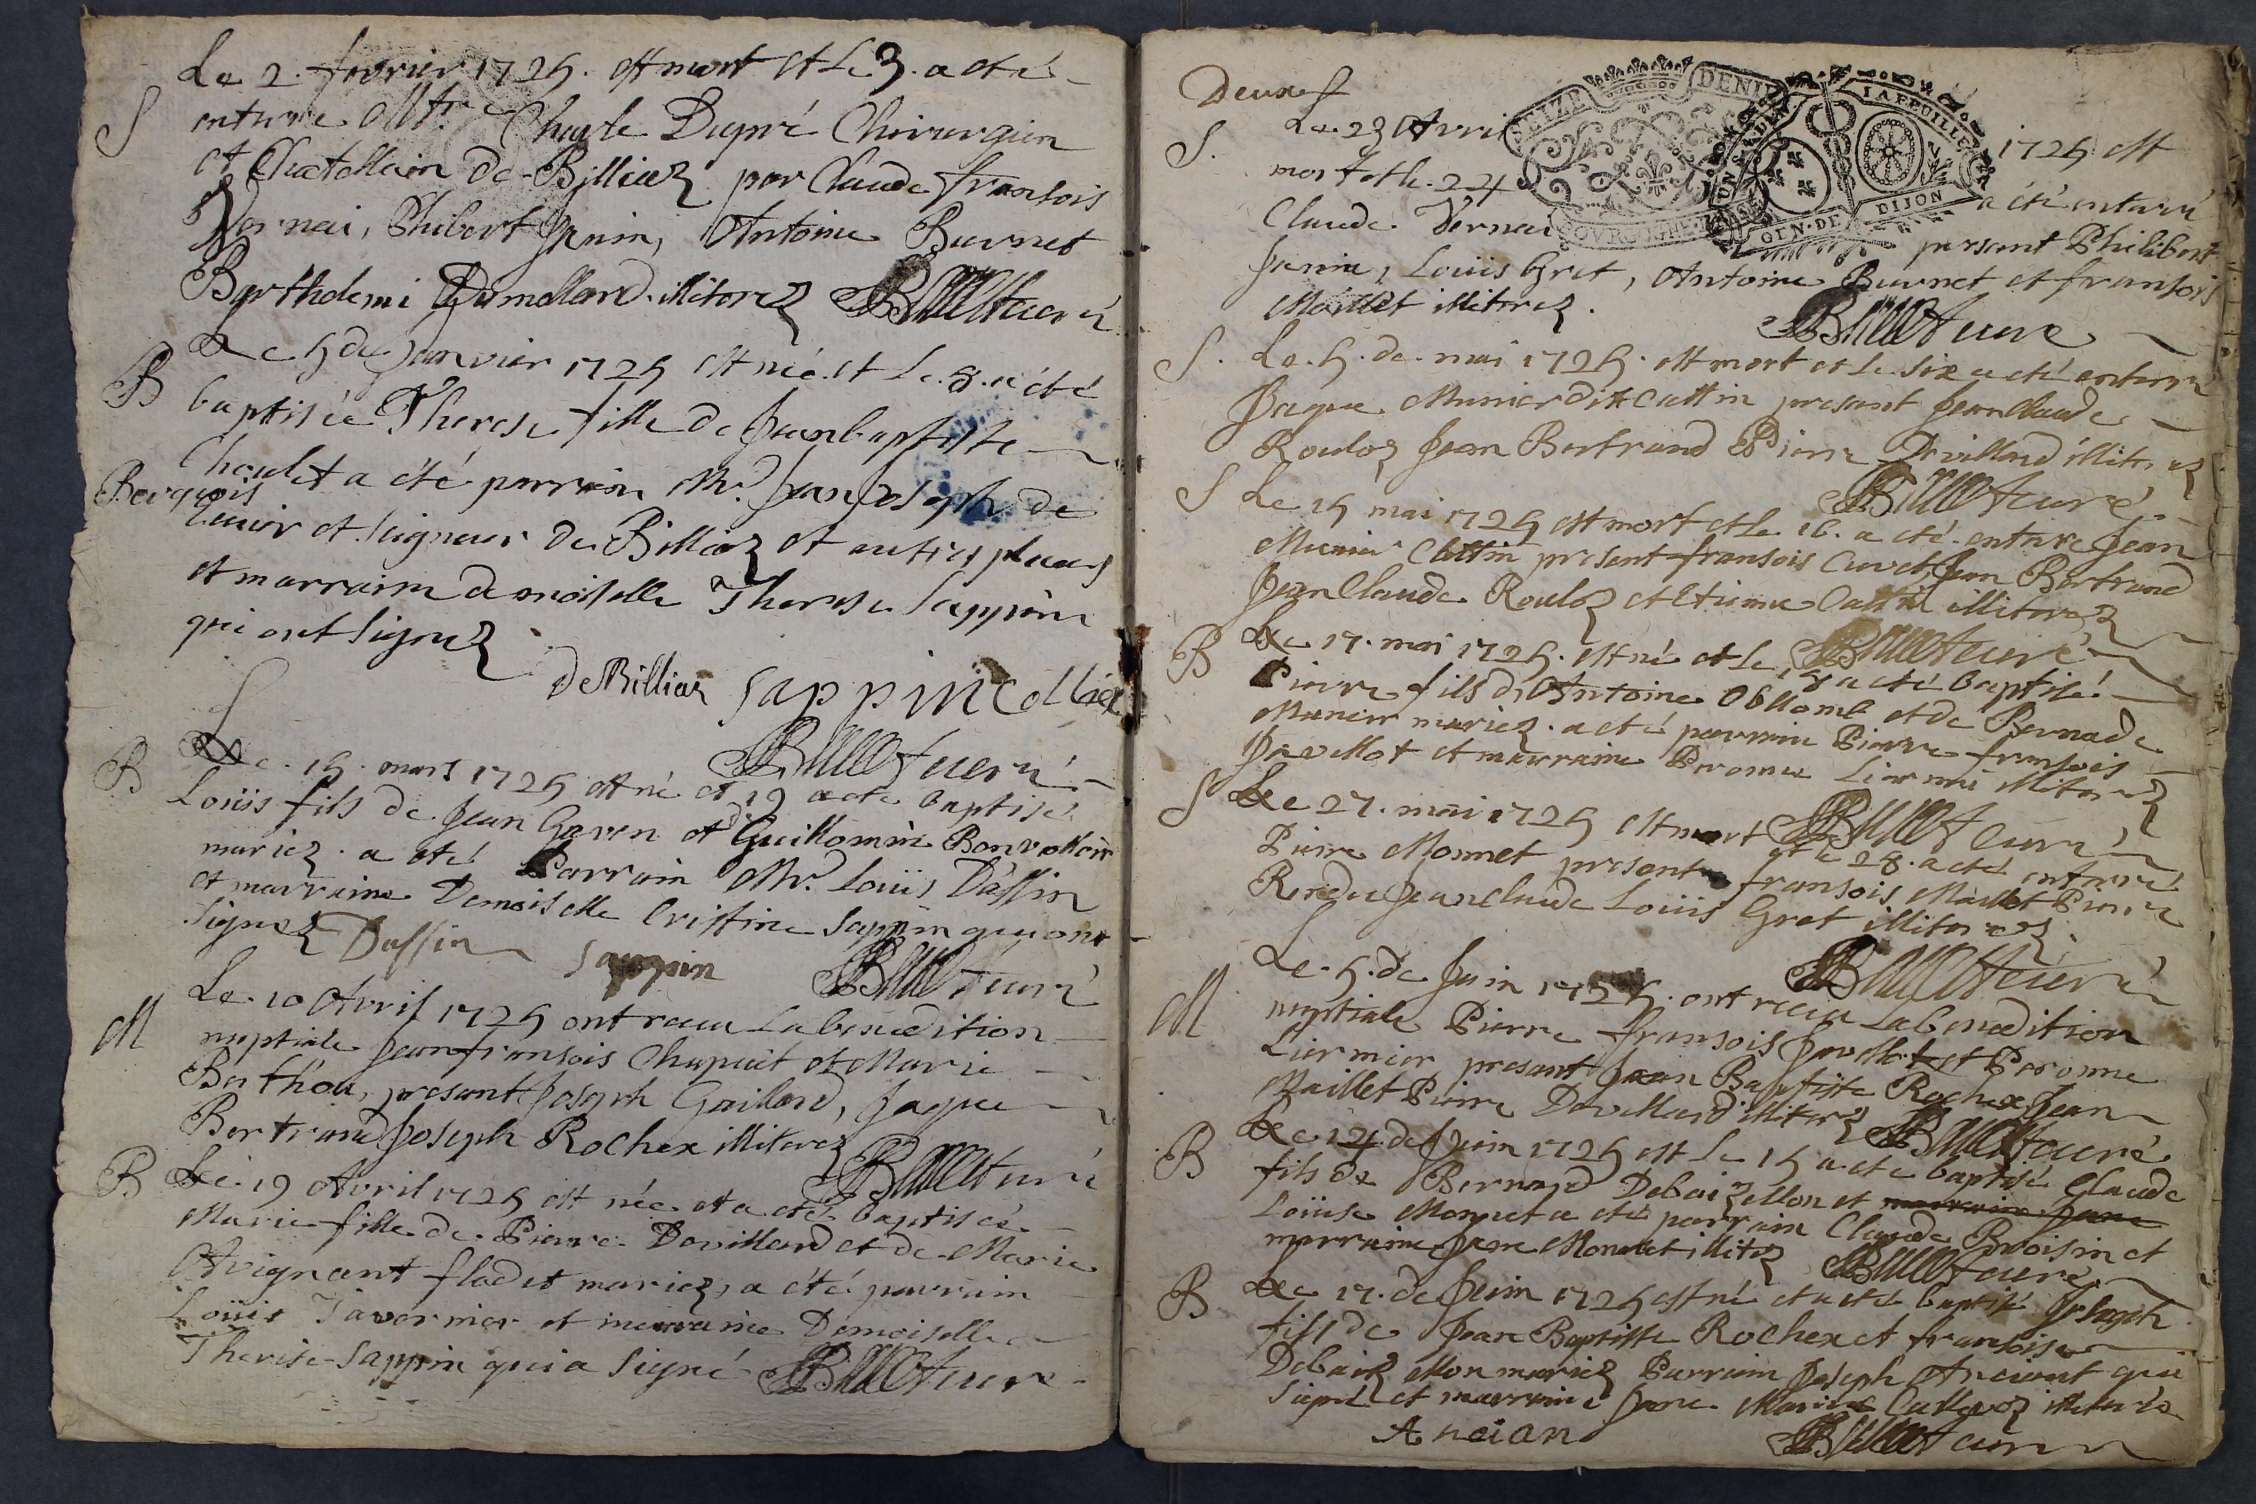 Le 2. fevrier 1725. est mort et le 3. a eté
S
enterré Mtr. Dupré Chirurgien
et Chatellain de Billiaz par Claude fransois
Vernai, Philibert Janin, Antoine Burnet
Barthelemi illiterez B curé
Le 5 de Janvier 1725 est née et Le 8. a été
B
baptisée Therese fille de Jeanbaptiste
Choulet a été parrain Mr. Jean Joseph de
Seigneur de Billiaz et autres places
et marraine demoiselle Therese Sappin
qui ont signez
de Billiaz Sappin
B curé
B
Le 15. mars 1725 est né et 19 a eté baptisé
Loüis fils de Jean Garen et de Guillomin
mariez. a eté Parrain Mr. Loüis Dassin
et marraine Demoiselle Cristine Sappin qui ont
signez Dassin Sappin
B curé
Le 10 Avril 1725 ont receu La benedition
M
nuptiale Jean fransois Chapuit et Marie
Berthou, presant Joseph Gaillard, Jaque
Bertrand Joseph Rochex illiterez
B curé
B
Le 19 Avril 1725 est née et a eté baptisée
Marie fille de Pierre Devillard et de Marie
Avignant mariez, a été parrain
Loüis Tavernier et marraine Demoiselle
Therese Sappin qui a signé B curé
Deux
S.
Le 23 Avril 1725 est
mort et le 24 a été enterré
Claude Vernai presant Philibert
Janin, Loüis Gret, Antoine Burnet et fransois
Maillet illiterez.
B curé
SEIZE DENIERS
LA FEUILLE
GEN. DE DIJON
S.
Le 5. de mai 1725. est mort et le six a eté enterré
Jaque Munier dit Cattin presant Jean Claude
Rouloz Jean Bertrand Pierre Devillard illiterez
B curé
S
Le 15 mai 1725 est mort et le 16. a eté enterré Jean
Munier Cattin presant fransois Cuvet, Jean Bertrand
Jean Claude Rouloz et Etienne Cattin illiterez
B curé
B
Le 17. mai 1725. est né et le 18 a eté baptisé
Pierre fils d'Antoine et de Bernade
Munier mariez. a eté parrain Pierre fransois
Javellot et marraine Peronne Liermi illiterez
B curé
S
Le 27. mai 1725 est mort et le 28. a eté enterré
Pierre Monnet presant fransois Maillet Pierre
Rendu Jean Claude Loüis Gret illiterez.
B curé
Le 5. de Juin 1725. ont receu La benedition
M
nuptiale Pierre fransois Javellot et Peronne
Liermier presant Jean Baptiste Rochex Jean
Maillet Pierre Devillard illiterez
B curé
B
Le 14 de Juin 1725 est Le 15 a eté baptisé Claude
fils de Bernard Debaizellon et marraine Jane
Loüise Monnet a eté parrain Claude Broisin et
marraine Jane Monnet illitez
B curé
B
Le 17. de Juin 1725 est né et a eté baptisé Joseph
fils de Jean Baptiste Rochex et fransoise
Debaizellon mariez Parrain Joseph Anciant qui
signé et marraine Jane Marie illiterée
Ancian
B curé